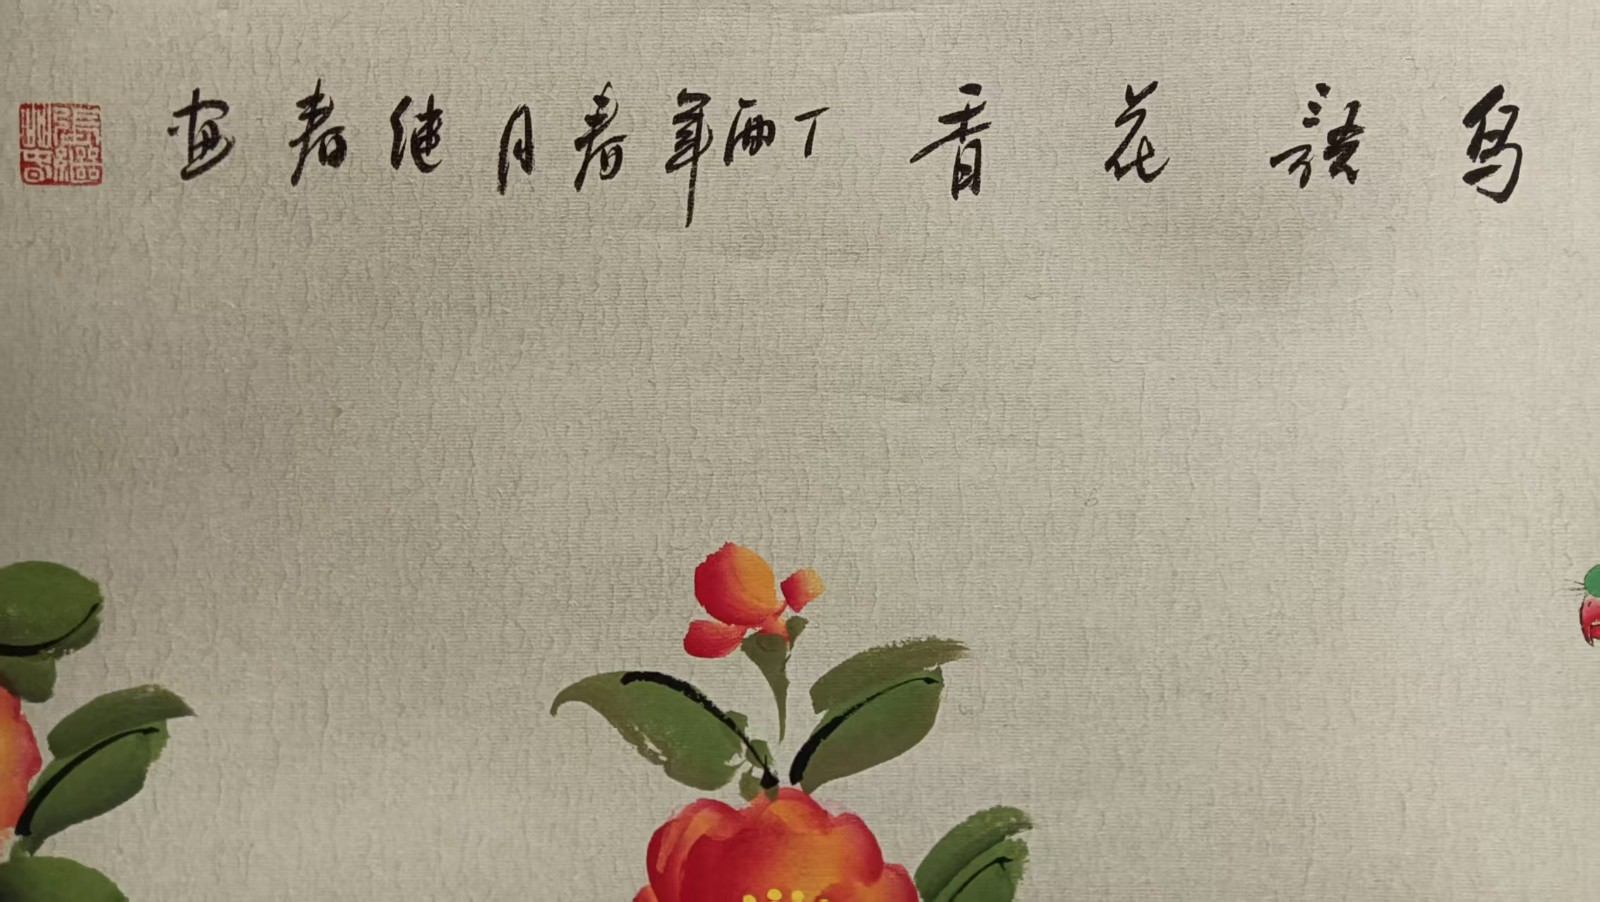 鸟語花香 丁酉年春月继春画